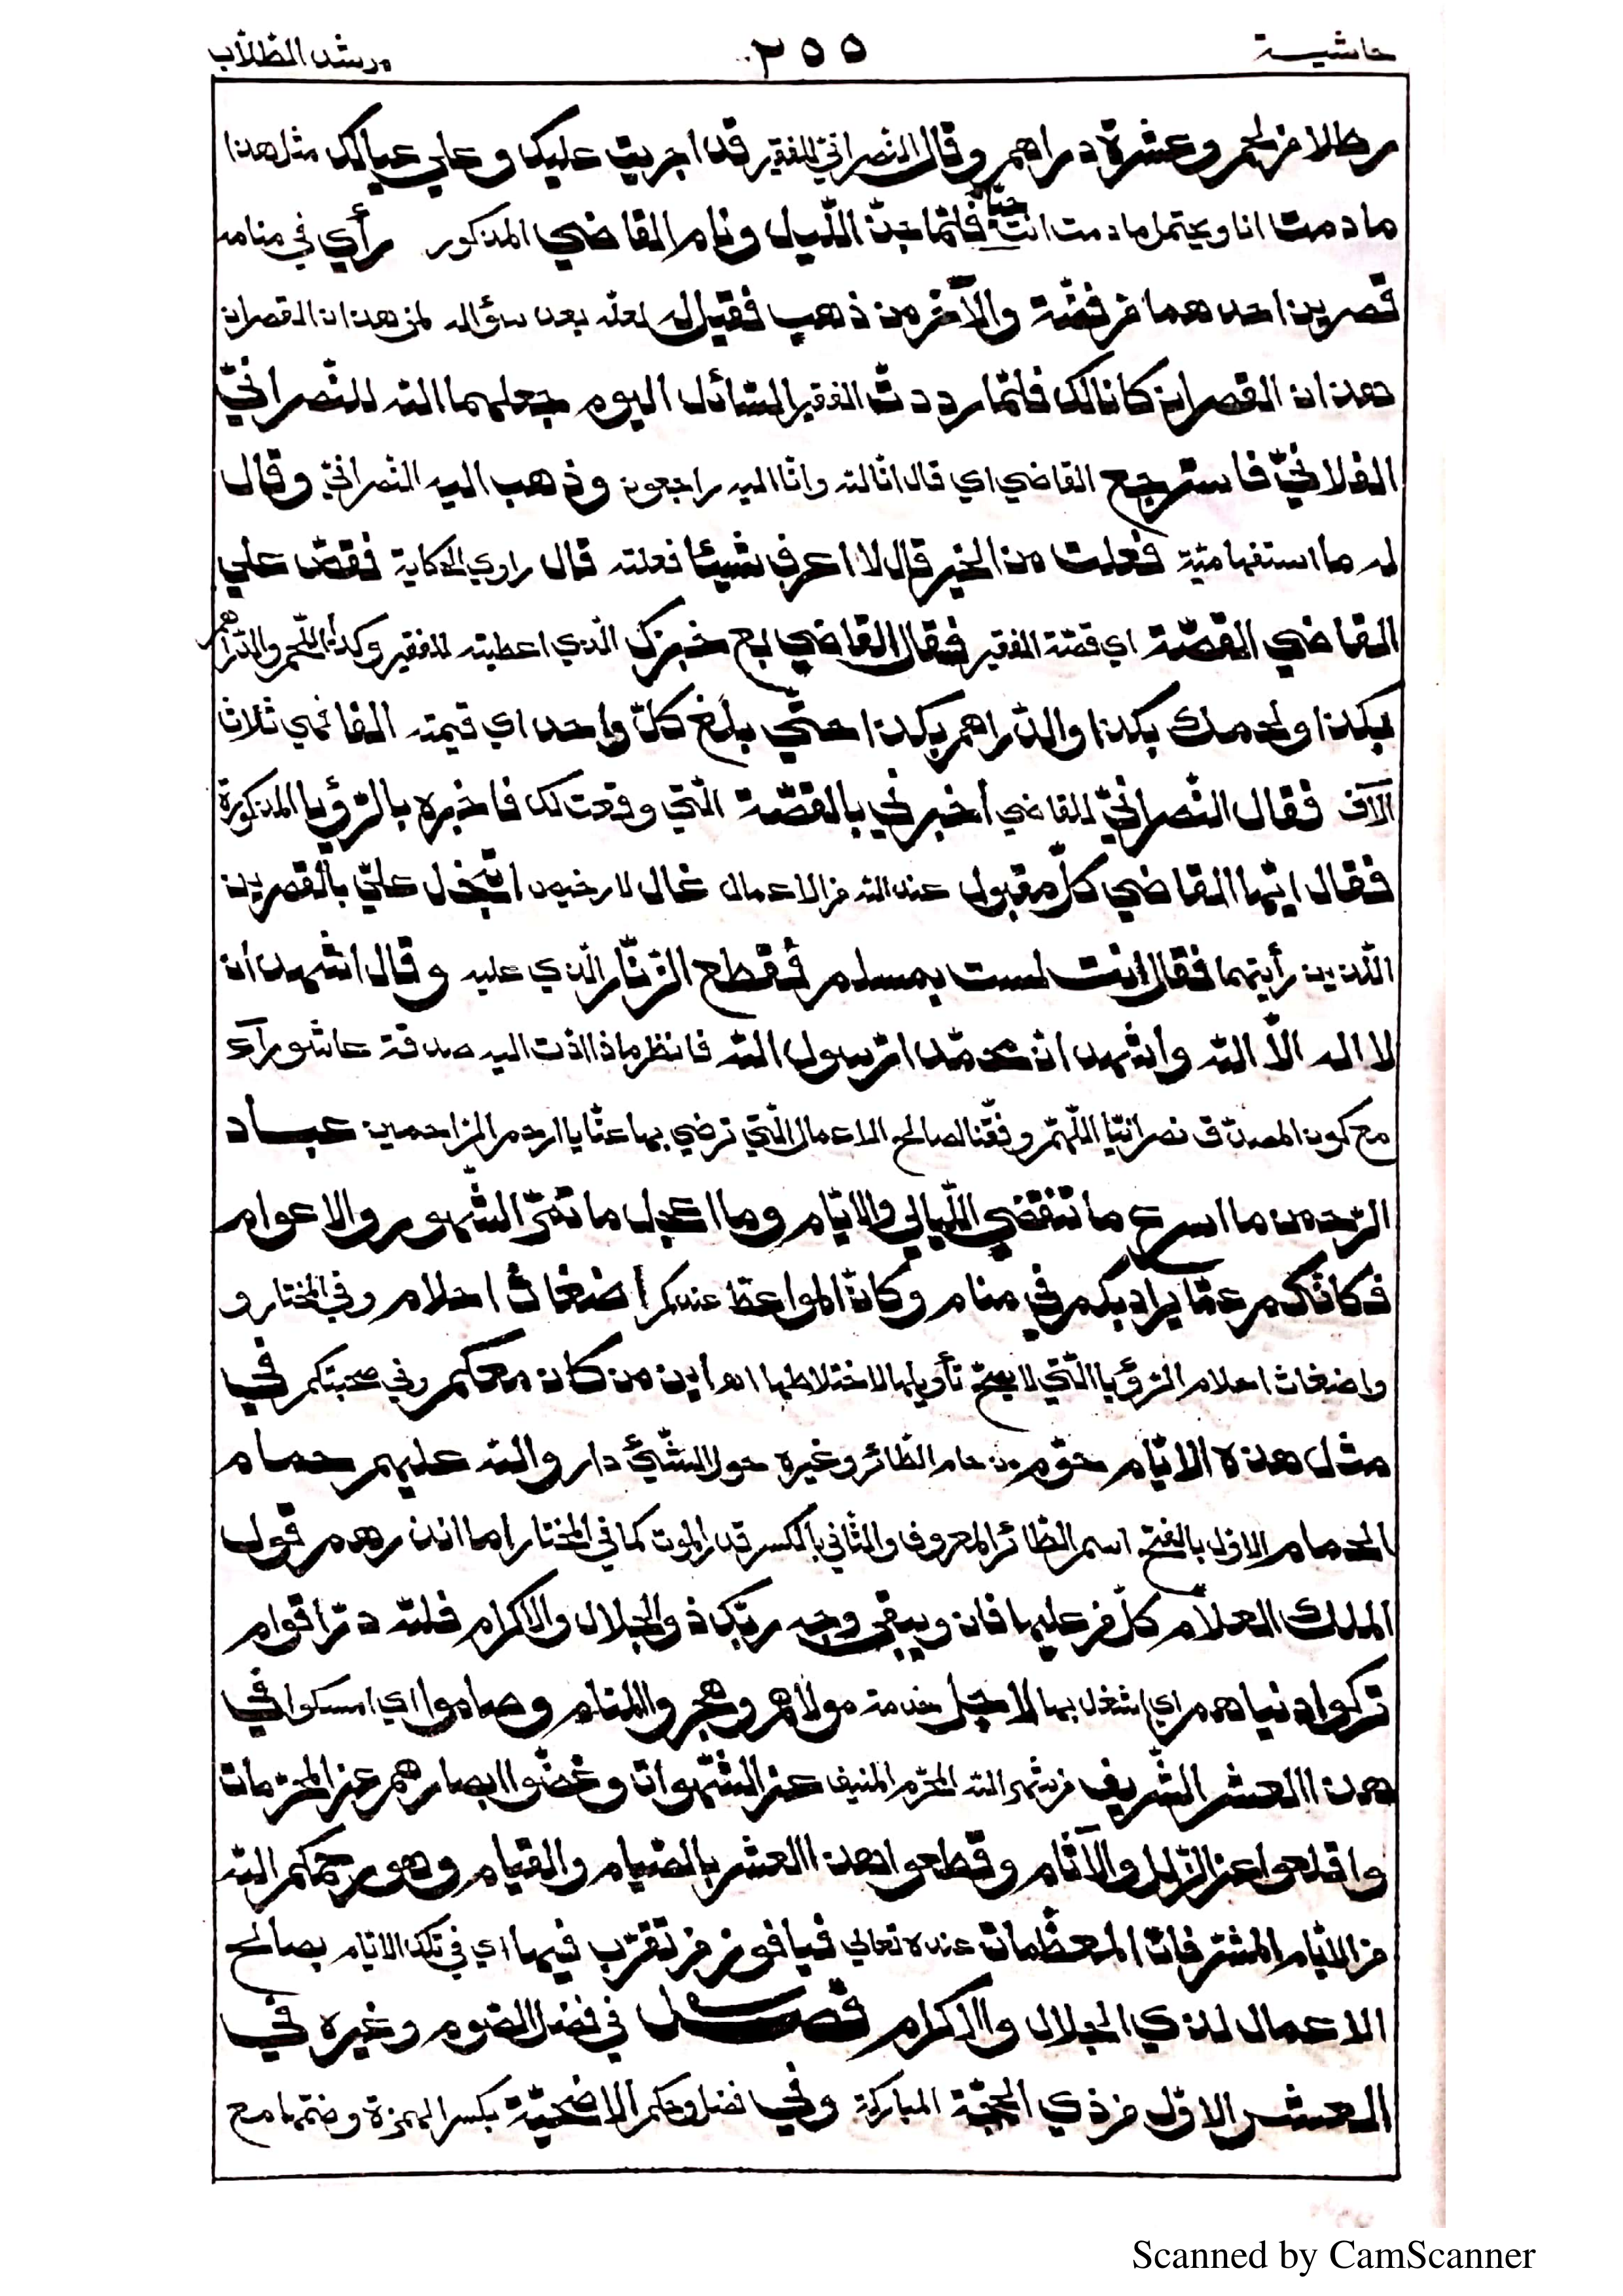 حاشية ٢٥٥ مرشد الطلّاب
رطلا من لحم وعشرة دراهم وقال النصرانيّ للفقير قد اجريت عليك وعلي عيالك مثل هذا
ما دمت انا ويحتمل ما دمت انت حيّا فلمّا جنّ اللّيل ونام القاضي المذكور رأي في منامه
قصرين احدهما من فضّة والآخر من ذهب فقيل له لعلّه بعد سؤاله لمن هذان القصران
هذان القصران كانا لك فلمّا رددتّ الفقير السّائل اليوم جعلهما الله للنّصرانيّ
الفلانيّ فاسترجع القاضي اي قال انّا لله وانّا اليه راجعون وذهب اليه النّصرانيّ وقال
له ما استفهاميّة فعلت من الخير قال لا اعرف شيئا فعلته قال راوي الحكاية فقصّ علي
القاضي القصّة اي قصّة الفقير فقال القاضي بع خبزك الّذي اعطيته للفقير وكذا اللّحم والدّراهم
بكذا ولحمك بكذا والدّراهم بكذا حتّي بلغ كلّ واحد اي قيمته القاضي ثلاث
آلاف فقال النّصرانيّ للقاضي أخبرني بالقصّة الّتي وقعت لك فاخبره بالرّؤيا المذكورة
فقال ايّها القاضي كلّ مقبول عند الله من الاعمال غال لا رخيص اتبخل عليّ بالقصرين
اللّذين رأيتهما فقال انت لست بمسلم فقطع الزّنّار الّذي عليه وقال اشهد ان
لا اله الّا الله واشهد انّ محمّدا رّسول الله فانظر ماذا ادّت اليه صدقة عاشورآء
مع كون المصدّق نصرانيّا اللّهمّ وفّقنا لصالح الاعمال الّتي ترضي بها عنّا يا ارحم الرّاحمين عباد
الرّحمن ما اسرع ما تنقضي اللّيالي والايّام وما اعجل ما تمرّ الشّهور والاعوام
فكانّكم عمّا يراد بكم في منام وكانّ المواعظ عندكم اضغاث احلام وفي المختار و
واضغاث احلام الرّؤيا الّتي لا يصحّ تأويلها لاختلاطها اه اين من كان معكم وفي صحبتكم في
مثل هذه الايّام حوّم من حام الطّائر وغيره حول الشّيئ دار والله عليهم حمام
الحمام الاوّل بالفتح اسم الطّائر المعروف والثّاني بالكسر قدر الموت كما في المختار اما انذرهم قول
الملك العلّام كلّ من عليها فان ويبقي وجه ربّك ذو الجلال والاكرام فلله درّ اقوام
تركوا دنياهم اي اشغل بها لاجل خدمة مولاهم وهجروا المنام وصاموا اي امسكوا في
هذا العشر الشّريف من شهر الله المحرّم المنيف عن الشّهوات وغضّوا ابصارهم عن المحرّمات
واقلعوا عن الزّلل والآثام وقطعوا هذا العشر بالصّيام والقيام وهو رحمكم الله
من الايّام المشرّفات المعظّمات عنده تعالي فيا فوز من تقرّب فيها اي في تلك الايّام بصالح
الاعمال لذي الجلال والاكرام فصل في فضل الصّوم وغيره في
العشر الاوّل من ذي الحجّة المباركة وفي فضل وحكم الاضحيّة بكسر الهمزة وضمّها مع
Scanned by CamScanner